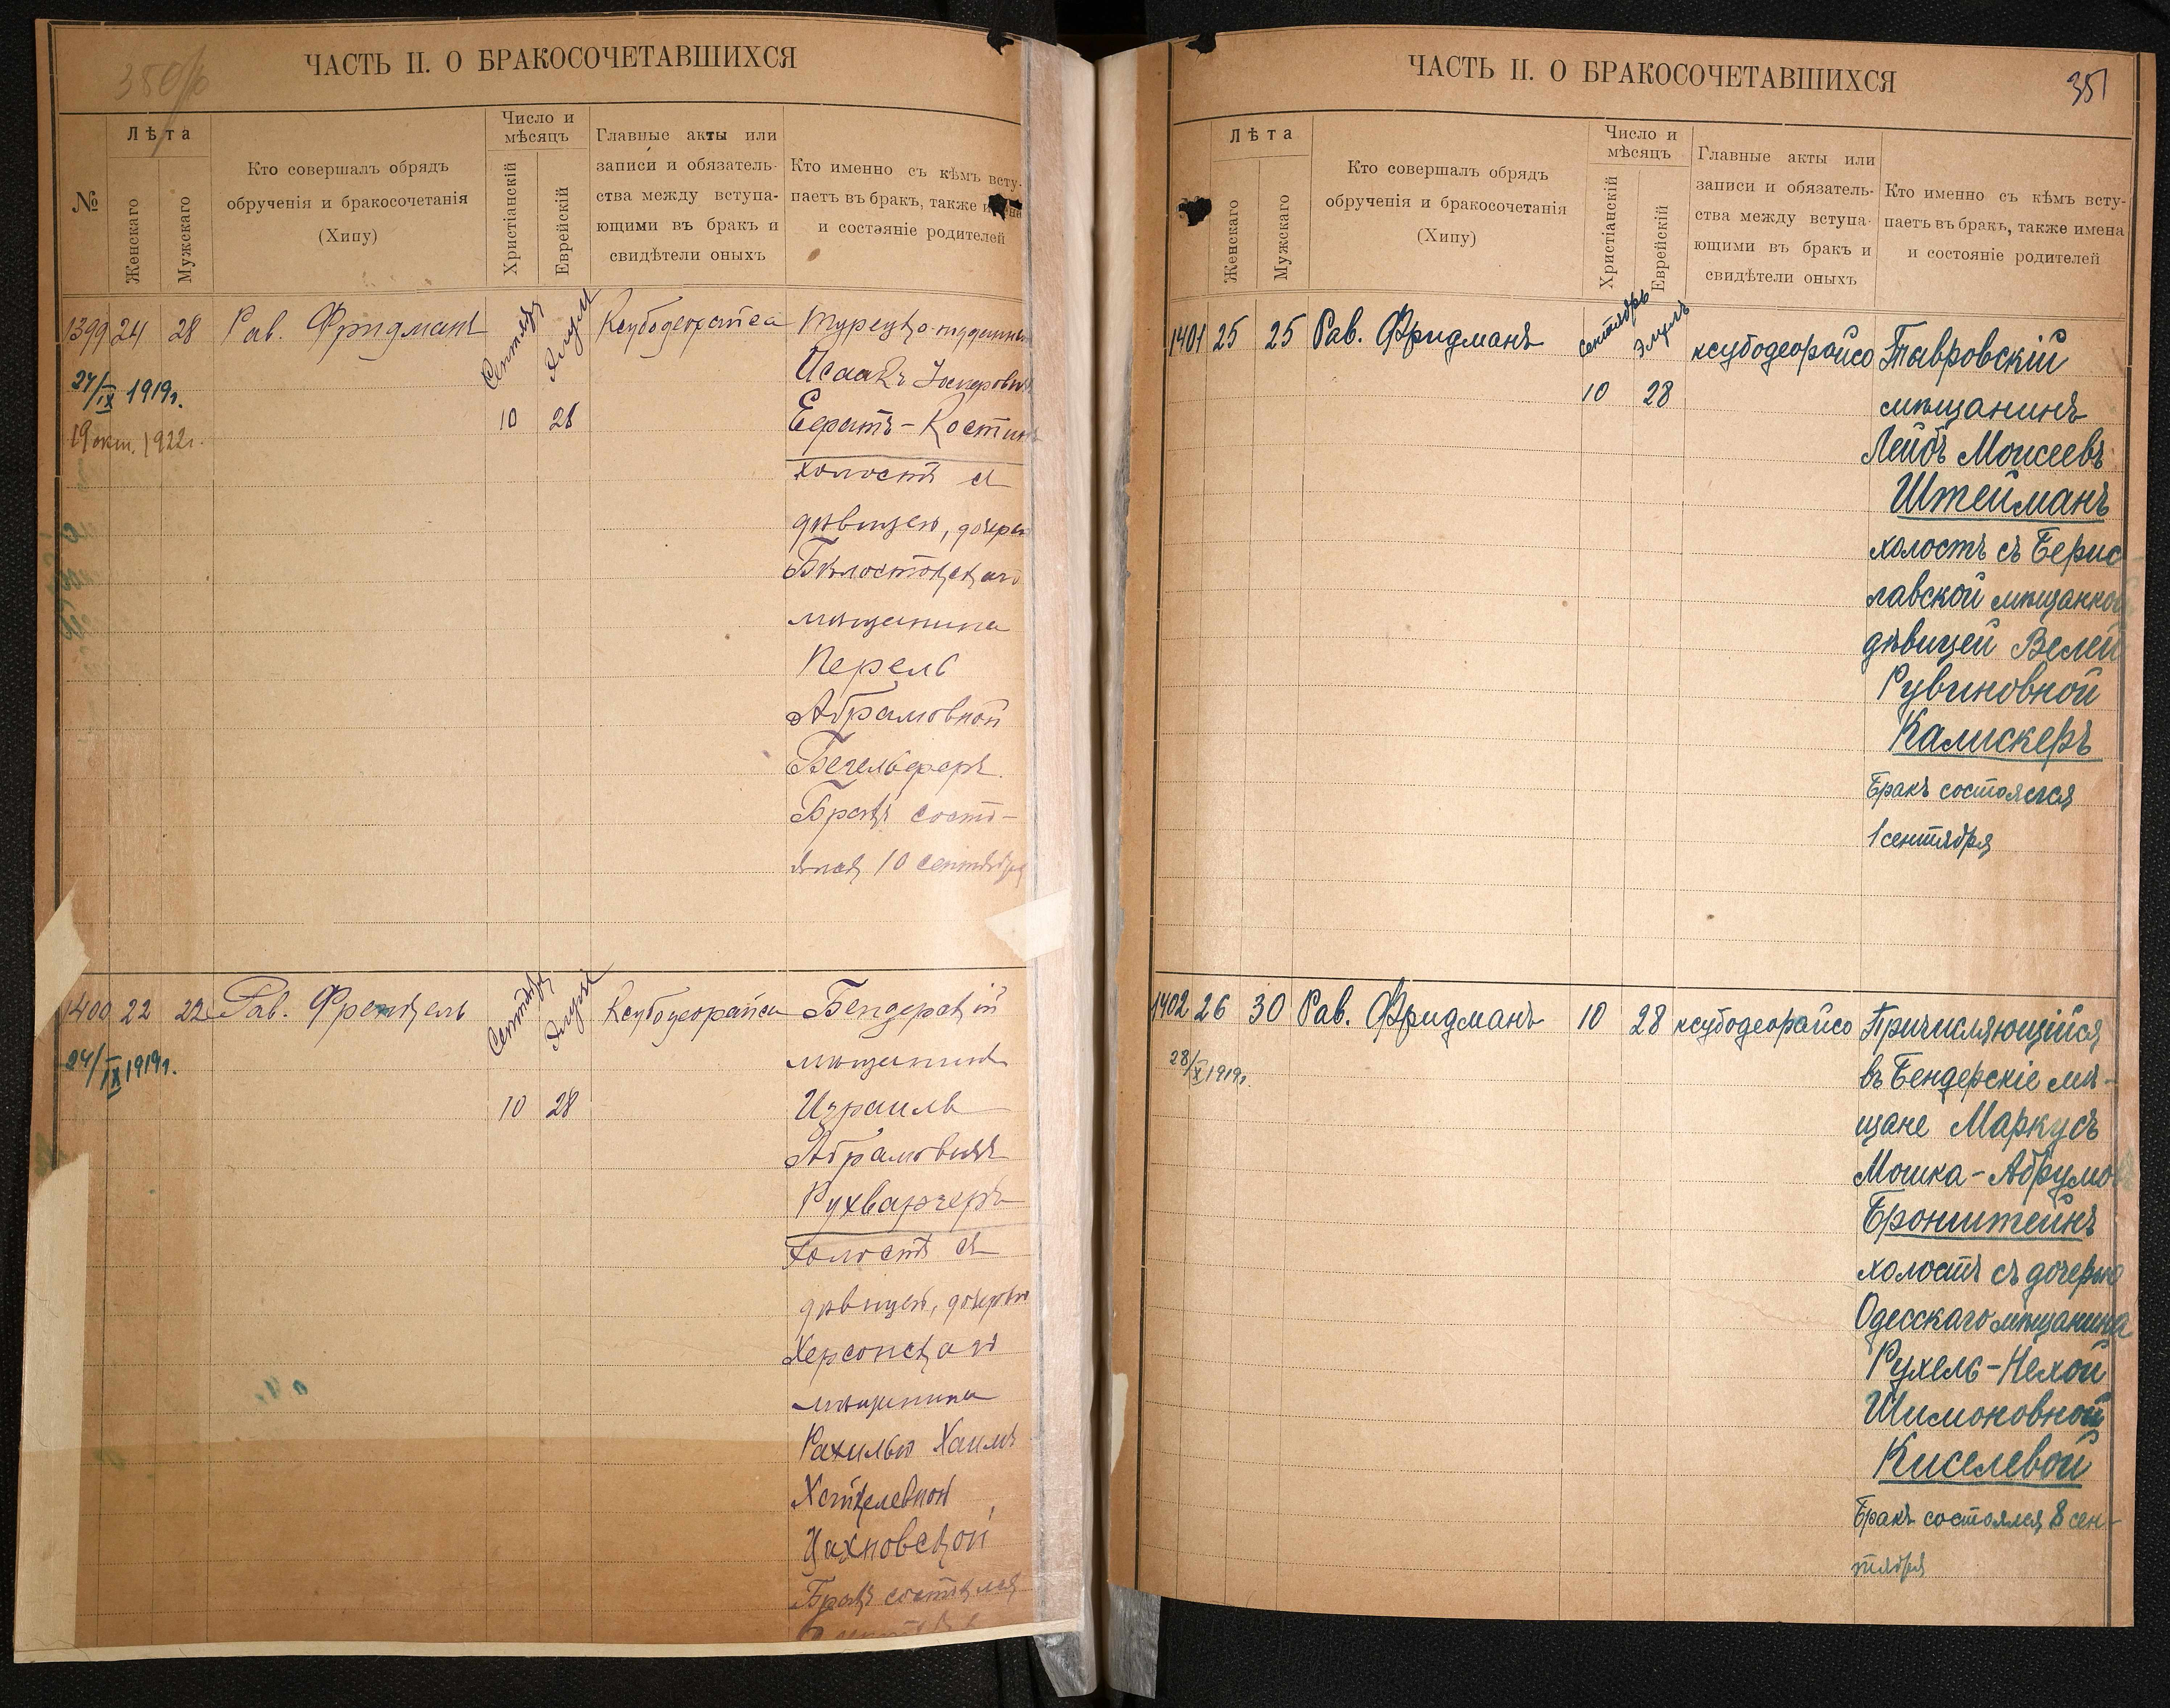 350/об
ЧАСТЬ II. О БРАКОСОЧЕТАВШИХСЯ
№
Лѣта
Женскаго
Мужскаго
Кто совершалъ обрядъ
обрученія и бракосочетанія
(Хипу)
Число и
мѣсяцъ
Христіанскій
Еврейскій
Главные акты или
записи и обязатель-
ства между вступа-
ющими въ бракъ и
свидѣтели оныхъ
Кто именно съ кѣмъ всту-
паетъ въ бракъ, также
и состояніе родителей
1399 24 28 Рав. Фридманъ
Сентябрь
Элулъ
10 28
27/IX 1919г.
19 окт. 1922г.
Ксубодеорайса
Исаакъ
холостъ съ
дѣвицею, дочерью
Бѣлостокскаго
мѣщанина
Перель
Абрамовной
Бракъ состо-
ялся 10 сентября
1400 22 22 Рав. Френкель
Сентябрь
Элулъ
10 28
24/IX 1919г.
Ксубодеорайса
Бендерскій
мѣщанинъ
Израиль
Абрамовичъ
Рухваргеръ
холостъ съ
дѣвицею, дочерью
Херсонскаго
мѣщанина
Рахилью Хаимъ
Хацкелевной
Цихновской
Бракъ состоялся
351
ЧАСТЬ II. О БРАКОСОЧЕТАВШИХСЯ
Лѣта
Женскаго
Мужскаго
Кто совершалъ обрядъ
обрученія и бракосочетанія
(Хипу)
Число и
мѣсяцъ
Христіанскій
Еврейскій
Главные акты или
записи и обязатель-
ства между вступа-
ющими въ бракъ и
свидѣтели оныхъ
Кто именно съ кѣмъ всту-
паетъ въ бракъ, также имена
и состояніе родителей
1401 25 25 Рав. Фридманъ
сентябрь
Элулъ
10 28
ксубодеорайсо
Тавровскій
мѣщанинъ
Лейбъ Моисеевъ
Штейманъ
холостъ съ Берис
лавской мѣщанкой
дѣвицей Велей
Рувиновной
Калискеръ
Бракъ состоялся
1 сентября
1402 26 30 Рав. Фридманъ 10 28 ксубодеорайсо
28/X 1919г.
Причисляющійся
въ Бендерскіе мѣ-
щане Маркусъ
Мошка-Абрумовъ
Бронштейнъ
холостъ съ дочерью
Одесскаго мѣщанина
Рухель-Нехой
Шимоновной
Киселевой
Бракъ состоялся 8 сен-
тября